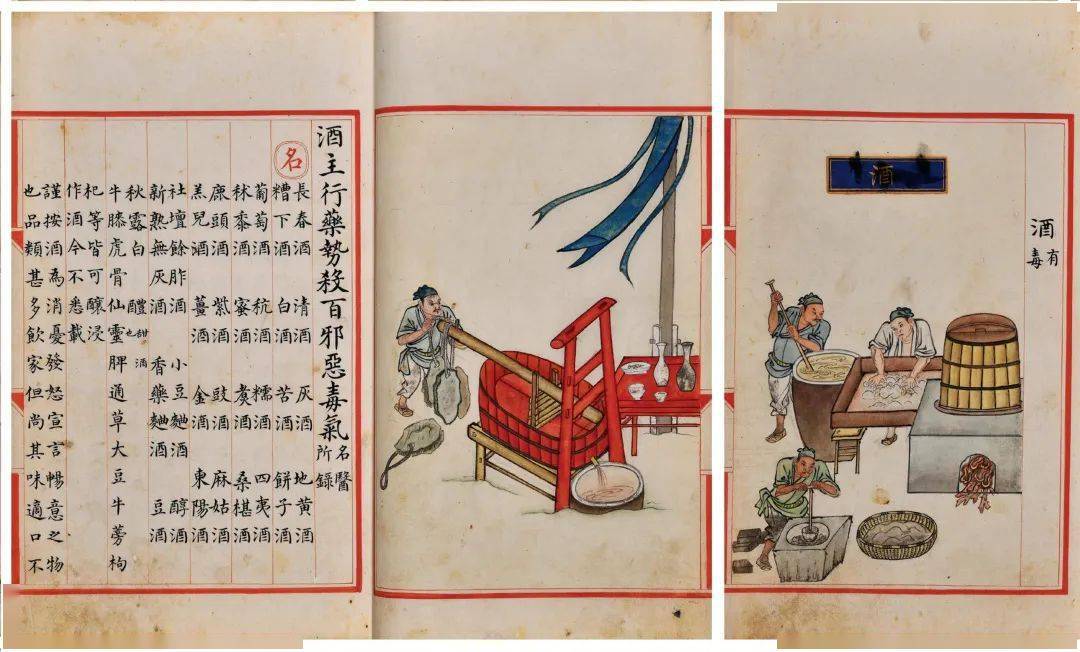 酒 有毒
酒
酒主行藥勢殺百邪惡毒氣 名醫所錄
名
長春酒 清酒 灰酒 地黃酒
糟下酒 白酒 苦酒 餅子酒
葡萄酒 秔酒 糯酒 四夷酒
秫黍酒 蜜酒 煑酒 桑椹酒
鹿頭酒 紫酒 豉酒 麻姑酒
羔兒酒 薑酒 金酒 東陽酒
社壇餘胙酒 小豆麯酒 醇酒
新熟無灰酒 香藥麯酒 豆酒
秋露白 醴 甜酒也
牛膝虎骨仙靈脾通草大豆牛蒡枸
杞等皆可釀浸
作酒今不悉載
謹按酒為消憂發怒宣言暢意之物
也品類甚多飲家但尚其味適口不